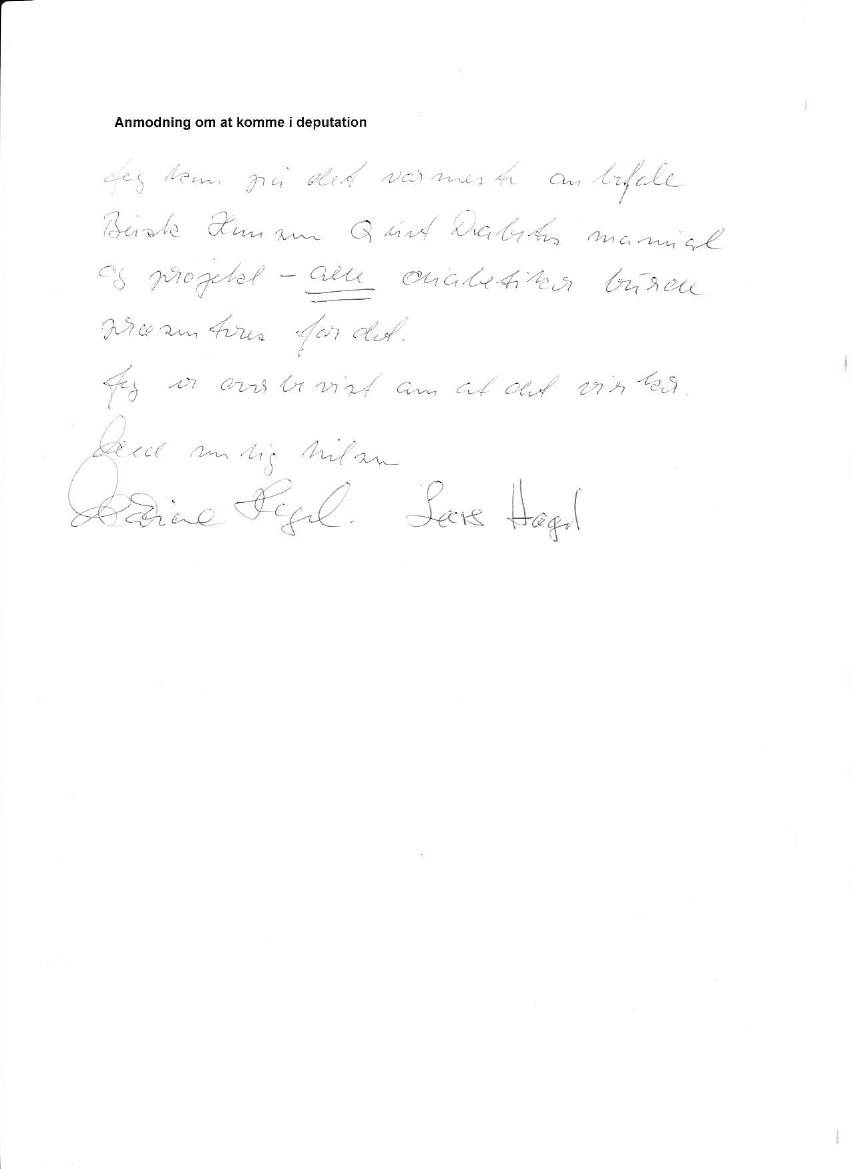 Anmodning om at komme i deputation
Jeg kan på det varmeste anbefale
Busk Hansen Quint Diabetes manual
og projekt – alle diabetiker burde
præsenteres for det.
Jeg er overbevist om at det virker.
Med venlig hilsen
Hagel. Lars Hagel